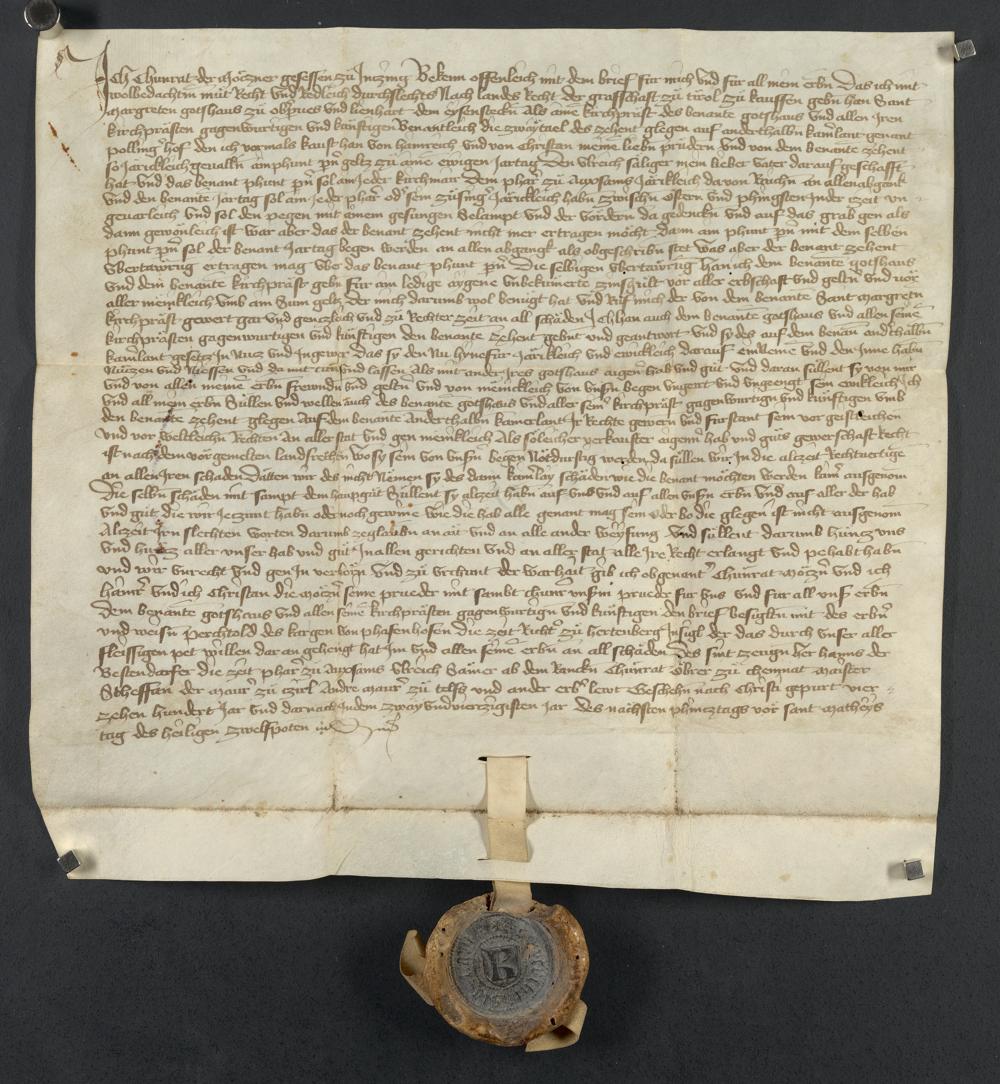 Ich Chunrat der Môtzner gesessen zů Inczing Bekenn offenleich mit dem brief für mich vnd für all mein erbn Das ich mit
wolbedachtm můt Recht vnd Redleich durchslechts Nach landes Recht der graffschaft zů tirol zů kauffen gebn han Sant
Margreten gotshaus zů obprues vnd lienhart dem Aine kirchpräst des benante gotshaus vnd allen Iren
kirchprästen gagenwurtigen vnd künftigen Benantleich die zwaytael des zehent glegen auf anderthalbn kamlant genant
polling hof den ich vormals kauft han von hainreich vnd von christan meine liebn prüdern vnd von dem benante zehent
so järickleich geualln ain phunt pn geltz zů aine ewigen Jartag Den vlreich säliger mein lieber vater darauf geschafft
hat vnd das benant phunt pn sol am Jeder kirchmair Dem phar zů Axsams Järikleich dauon Raichn an allen abgank
vnd den benante Jartag sol am Jeder phar od sein zůsing Järickleich habn zwischn ostern vnd phingsten Inder czeit vn
geuarleich vnd sol den pegen mit ainem gesungen Selampt vnd der vordern da gedenckn vnd auf das grab gen als
dann gewonleich ist wär aber das der benant zehent nicht mer ertragen môcht dann ain phunt pn mit dem selben
phunt pn sol der benant Jartag begen werden an allen abgangk als obgeschribn stet was aber der benant zehent
vbertäwrig ertragen mag vber das benant phunt pn Die selbigen vbertäwrug han ich dem benante gotshaus
vnd dem benante kirchpräst gebn für ain ledige aygene vnbekümerte zinsgult vor aller erbschaft vnd geltn vnd vor
aller mēinkleich vmb ain Sum geltz der mich darumb wol benügt hat vnd Růf mich der von dem benante Sant margretn
kirchpräst gewert gar vnd genczleich vnd zů Rechter zeit an all schäden Ich han auch dem benante gotshaus vnd allen seine
kirchprästen gagenwurtigen vnd künftigen den benante zehent gebnt vnd geantwort vnd sy des auf dem benan anderthalbn
kamlant gesetzt In Nucz vnd Ingewer Das sy den Nu hynefür Järikleich vnd ewickleich darauf einNeme vnd den Inne habn
Nüczen vnd Niessen vnd da mit tůn vnd lassen Als mit ander Ires gotshaus aigen hab vnd gůt vnd daran süllent sy von mir
vnd von allen meine erbn frewndn vnd geltn vnd von mēinckleich von vnsn begen vngeirt vnd vngeengt sein ewikleich Ich
vnd all mein erbn Süllen vnd wellen auch des benante gotshaus vnd aller seine kirchpräst gagenwurtign vnd künftigen vmb
den benante zehent glegen Auf den benante Anderthalbn kamerlant Ir Rechte gewern vnd fürstant sein vor geistleichen
vnd vor weltleichn Rechten An aller stat vnd gen mēinkleich Als soleicher verkaufter aigenn hab vnd güts gewerschaft Recht
ist nach dem vorgemelten landsrechtn wo sy sein von vnsn begen Notdurftig werden da süllen wir In die alczeit Rechtuertige
an allen Iren schaden Dätten wir des nicht Nemen sy des dann kainlay schäden wie die benant môchten werden kain ausgenom
Die selbn schäden mit sampt dem haupgůt Süllent sy alczeit habn auf vns vnd auf allen vnsn erbn vnd auf aller der hab
vnd gůt die wir Jeczunt habn oder noch gewine wie die hab alle genant mag sein oder wo die glegen ist nicht ausgenom
Alczeit Irn slechten worten darumb zeglaubn an ait vnd an alle ander weysung vnd süllent darumb hüncz vns
vnd hüncz aller vnser hab vnd gůt In allen gerichten vnd an aller stat alle Ire Recht erlangt vnd pehabt habn
vnd wir vnrecht vnd gen In verlorn vnd zů vrchunt der warhait gib ich obgenant Chunrat Môtzn vnd ich
hainr vnd ich Christan die môczn seine prueder mit sambt chunr vnsm prueder für vns vnd für all vns erbn
Dem benante gotshaus vnd allen seine kirchprästen gagenwurtign vnd künftigen den brief besigltn mit des erbn
vnd weisn perchtold des kargen von phafenhofen die zeit Richt zů hertenberg Insigl der das durch vnser aller
fleissigen pet willen dar an gehengt hat Im vnd allen seine erbn an all schäden Des sint zeugn her hanns der
Bestendorfer die zeit phar zů Axsams vlreich Säwer ab dem Ranckn Chunrat Obrer zů chemnat maister
Stheffan der Maur zů zirl Andre Maur zů telfs vnd ander erb lewt Geschehn nach Christi gepurt vier
zehen hundert Jar vnd darnach Indem zway vnd vierczigisten Jar des nächsten phincztags vor sant Matheys
tag des heiligen zwelfpoten